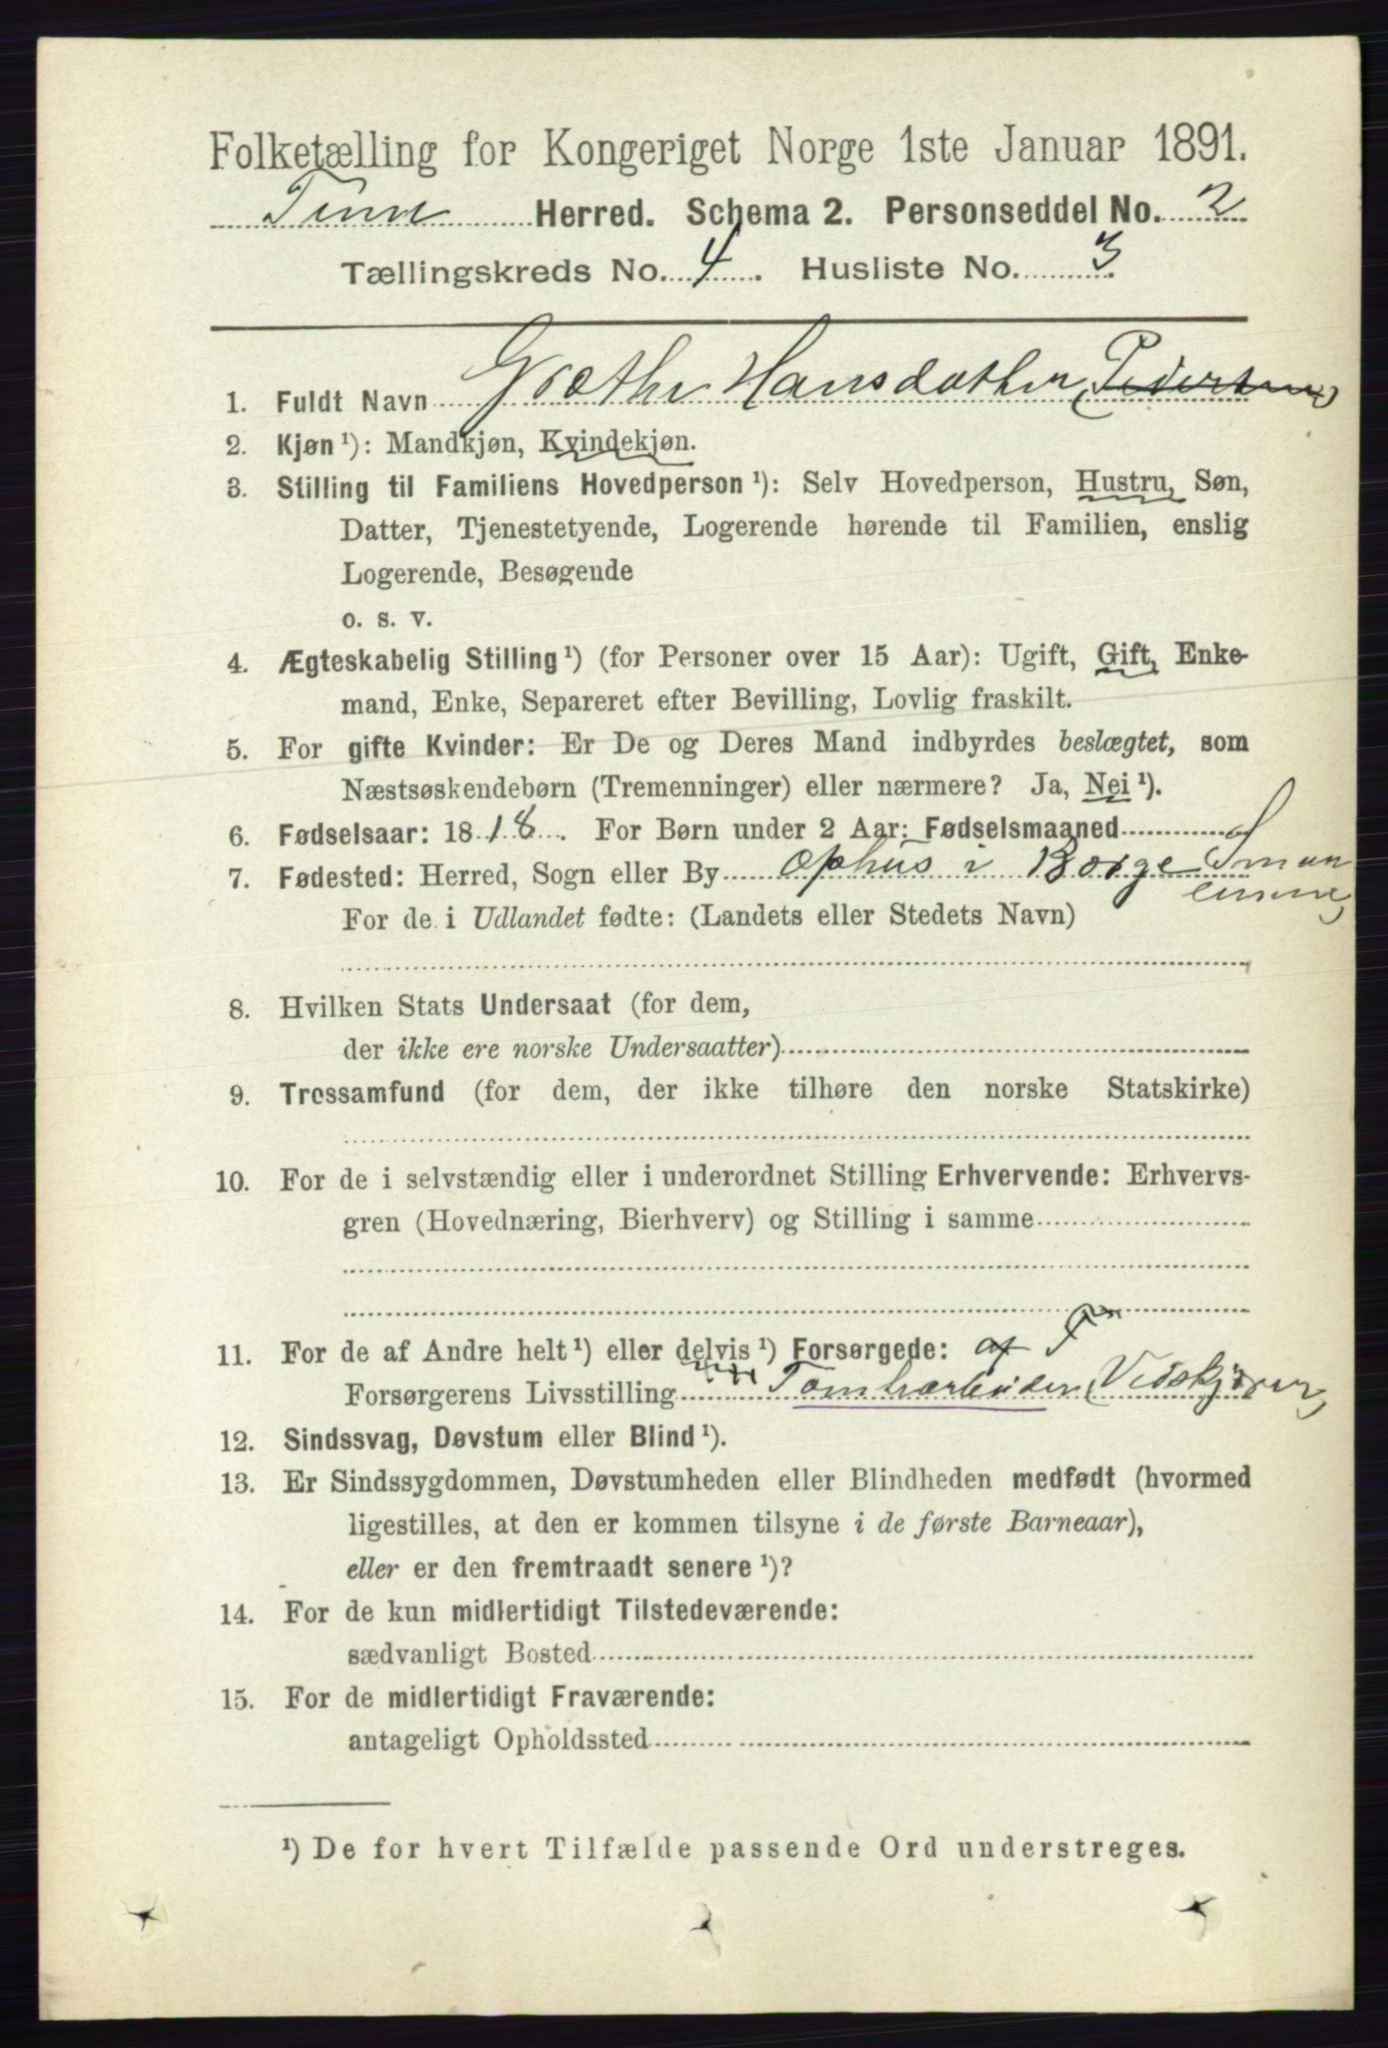 Folketælling for Kongeriget Norge 1ste Januar 1891.
Tune Herred. Schema 2. Personseddel No. 2
Tællingskreds No. 4. Husliste No. 3
1. Fuldt Navn Grethe Hansdather (Pedersen)
2. Kjøn ¹): Mandkjøn, Kvindekjøn.
3. Stilling til Familiens Hovedperson ¹): Selv Hovedperson, Hustru, Søn,
Datter, Tjenestetyende, Logerende hørende til Familien, enslig
Logerende, Besøgende
o. s. v.
4. Ægteskabelig Stilling ¹) (for Personer over 15 Aar): Ugift, Gift, Enke-
mand, Enke, Separeret efter Bevilling, Lovlig fraskilt.
5. For gifte Kvinder: Er De og Deres Mand indbyrdes beslægtet, som
Næstsøskendebørn (Tremenninger) eller nærmere? Ja, Nei ¹).
6. Fødselsaar: 1818. For Børn under 2 Aar: Fødselsmaaned
7. Fødested: Herred, Sogn eller By Ophus i Borge Smaa
lenene
For de i Udlandet fødte: (Landets eller Stedets Navn)
8. Hvilken Stats Undersaat (for dem,
der ikke ere norske Undersaatter)
9. Trossamfund (for dem, der ikke tilhøre den norske Statskirke)
10. For de i selvstændig eller i underordnet Stilling Erhvervende: Erhvervs-
gren (Hovednæring, Bierhverv) og Stilling i samme
11. For de af Andre helt ¹) eller delvis ¹) Forsørgede: af F
Forsørgerens Livsstilling Tomtearbeider, Vedskjærer
12. Sindssvag, Døvstum eller Blind ¹).
13. Er Sindssygdommen, Døvstumheden eller Blindheden medfødt (hvormed
ligestilles, at den er kommen tilsyne i de første Barneaar),
eller er den fremtraadt senere ¹)?
14. For de kun midlertidigt Tilstedeværende:
sædvanligt Bosted
15. For de midlertidigt Fraværende:
antageligt Opholdssted
¹) De for hvert Tilfælde passende Ord understreges.